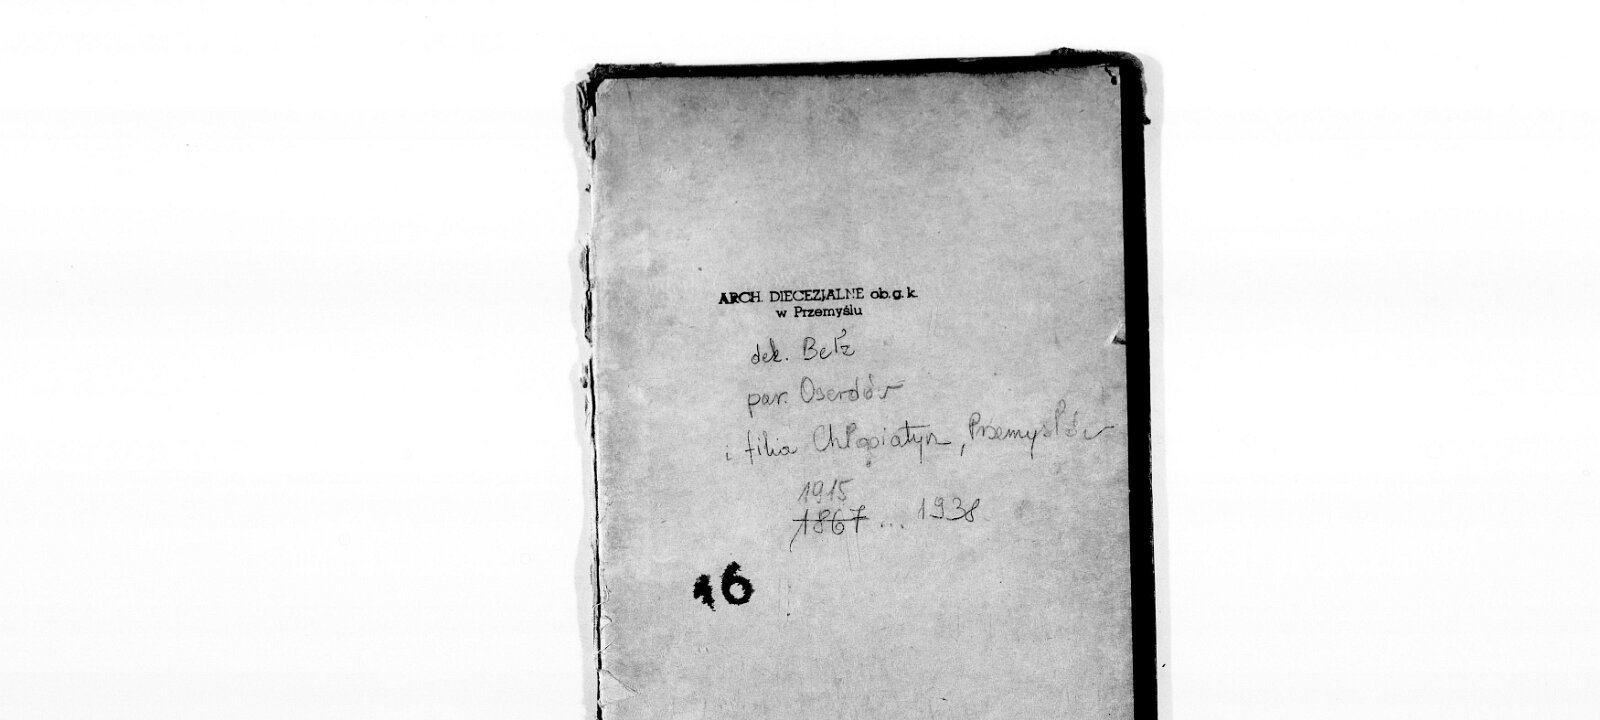 ARCH. DIECEZJALNE ob.g.k.
w Przemyślu
dek. Bełz
par. Oserdów
i filia Chłopiatyn, Przemysłów
1915
1867 ... 1938
16